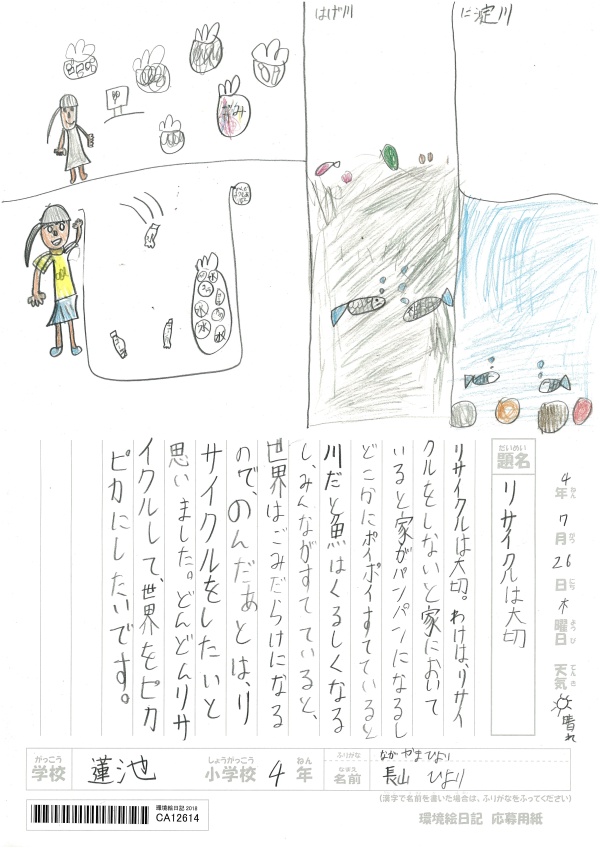 はげ川
に淀川
ゆ
ごみ
水
水
水
だいめい
題名
リサイクルは大切
4年7月26日木曜日 天気 晴れ
ねん がつ にち ようび てんき
リサイクルは大切。わけは、リサイ
クルをしないと家において
いると家がパンパンになるし
どこかにポイポイすてていると
川だと魚はくるしくなる
し、みんながすてていると、
世界はごみだらけになる
ので、のんだあとは、リ
サイクルをしたいと
思いました。どんどんリサ
イクルして、世界をピカ
ピカにしたいです。
がっこう
学校
蓮池
しょうがっこう
小学校
4
ねん
年
ふりがな
ながやまひより
なまえ
名前
長山 ひより
(漢字で名前を書いた場合は、ふりがなをふってください)
環境絵日記 2018
CA12614
環境絵日記 応募用紙